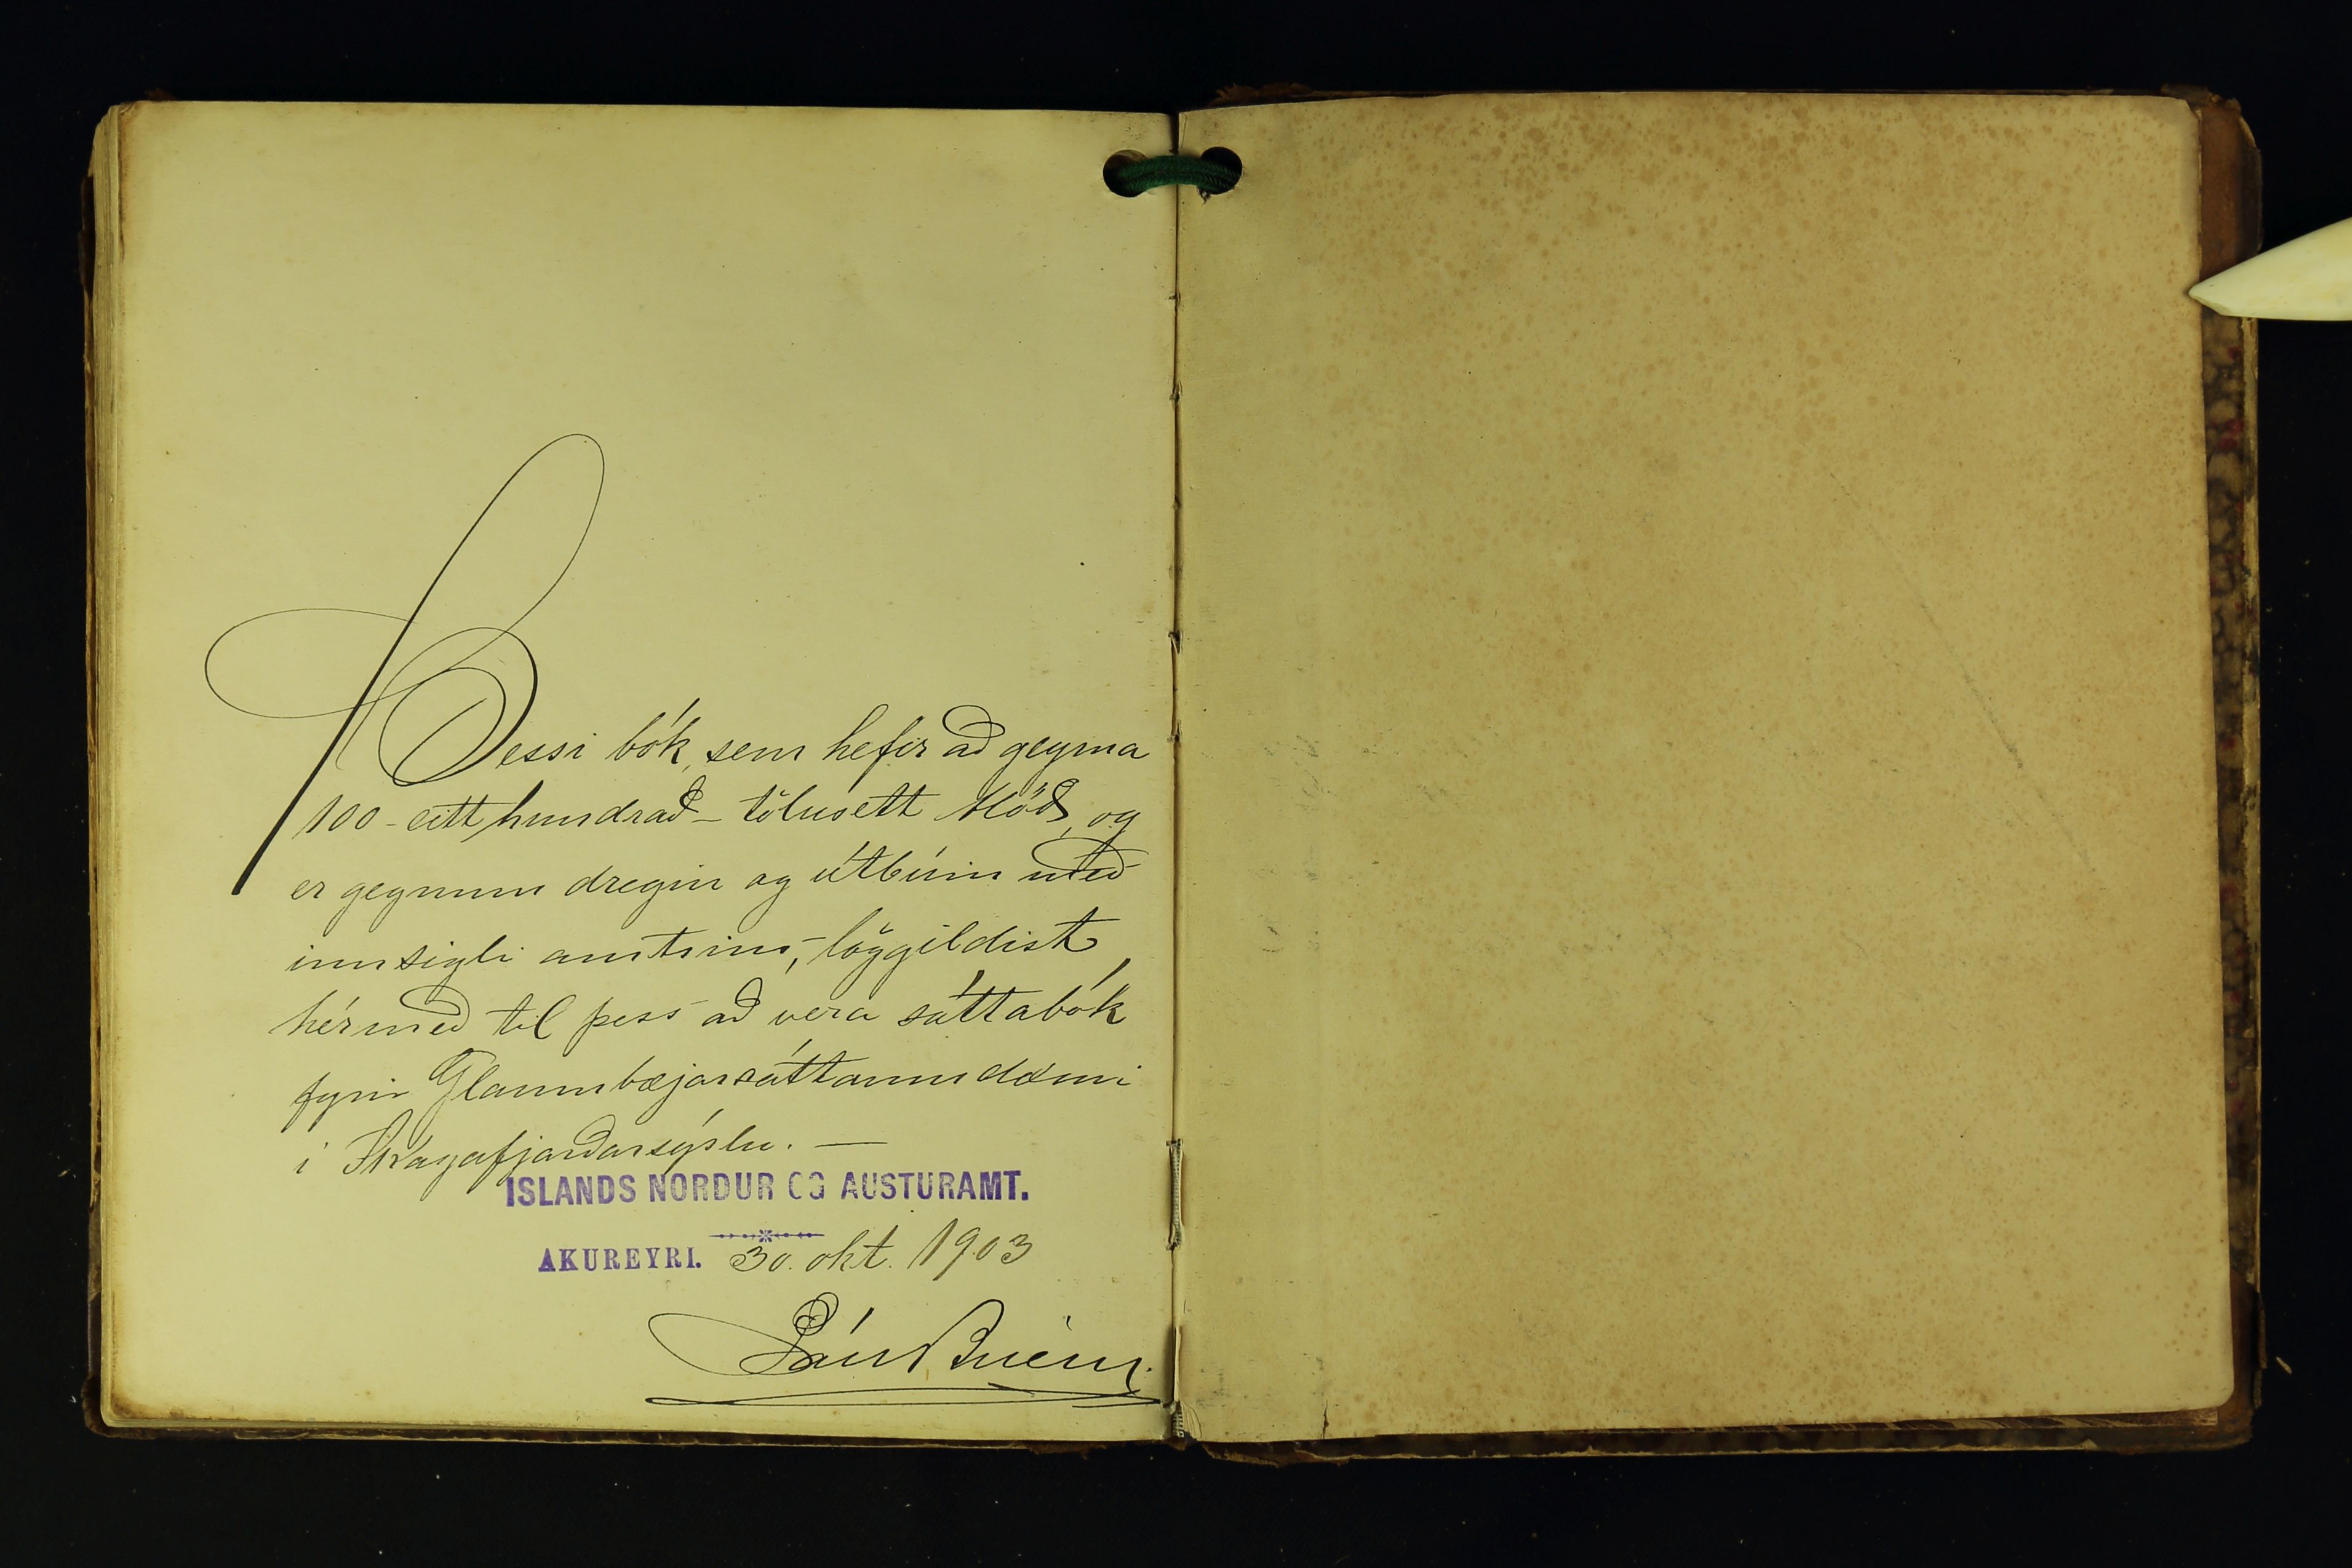 Þessi bók, sem hefir að geyma
100 - eitt hundrað - tölusett blöð, og
er gegnum dregin og útbúin með
innsigli amtsins, löggildist
hérmeð til þess að vera sáttabók
fyrir Glaumbæjarsáttaumdæmi
í Skagafjarðarsýslu. —
ISLANDS NORDUR OG AUSTURAMT.
AKUREYRI. 30. okt. 1903
Páll Briem.